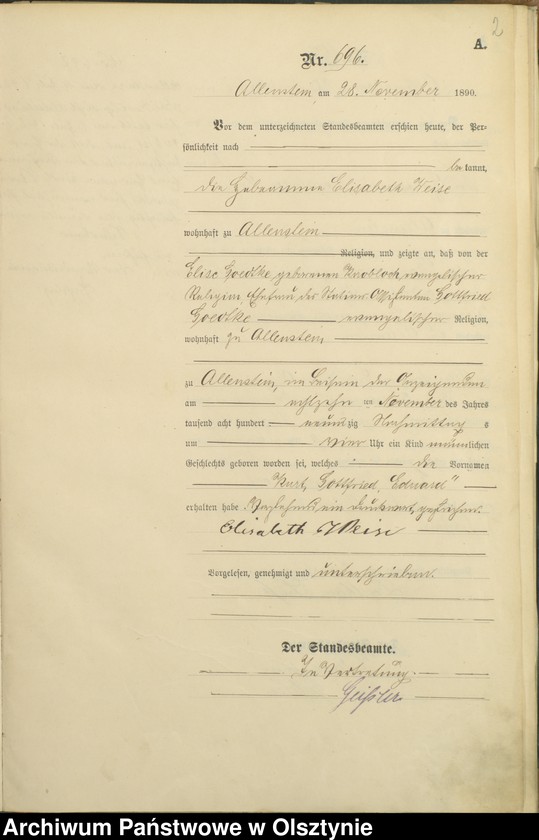 2
A.
Nr. 696.
Allenstein, am 28. November 1890.
Vor dem unterzeichneten Standesbeamten erschien heute, der Per-
sönlichkeit nach
bekannt,
die Hebamme Elisabeth Weise
wohnhaft zu Allenstein
Religion, und zeigte an, daß von der
Elise Goedtke geborenen Knobloch, evangelischer
Religion, Ehefrau des Stations-Assistenten Gottfried
Goedtke evangelischer Religion,
wohnhaft zu Allenstein
zu Allenstein, im Beisein der Anzeigenden
am achtzehn ten November des Jahres
tausend acht hundert neunzig Nachmittags
um vier Uhr ein Kind männlichen
Geschlechts geboren worden sei, welches die Vornamen
Kurt, Gottfried, Eduard"
erhalten habe. Vorstehend ein Druckwort gestrichen.
Elisabeth Weise
Vorgelesen, genehmigt und unterschrieben.
Der Standesbeamte.
In Vertretung.
Geißler
Archiwum Państwowe w Olsztynie